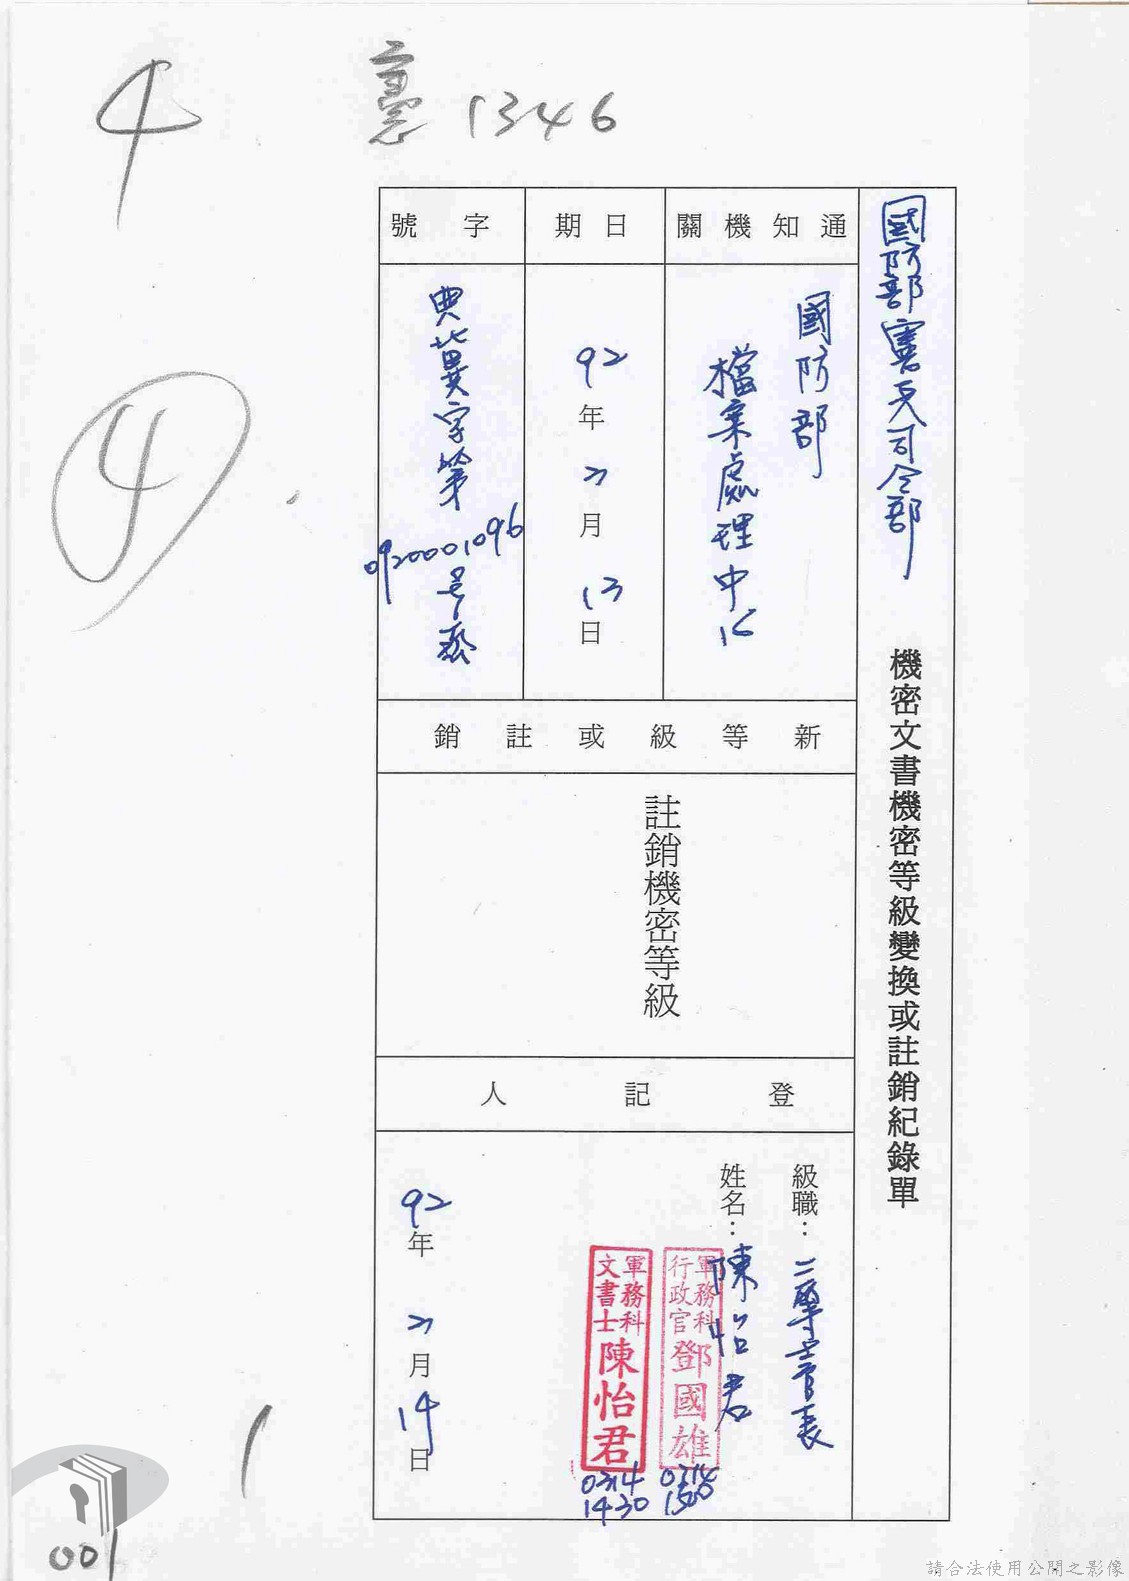 4
憲1346
4
國防部憲兵司令部
機密文書機密等級變換或註銷紀錄單
通知機關
國防部
檔案處理中心
日期
92年3月13日
字號
典冀字第
0920001096
号函
新等級或註銷
註銷機密等級
登記人
級職：二等士官長
姓名：陳怡君
軍務科
行政官
鄧國雄
0314
1500
軍務科
文書士
陳怡君
0314
1430
92年3月14日
1
001
請合法使用公開之影像